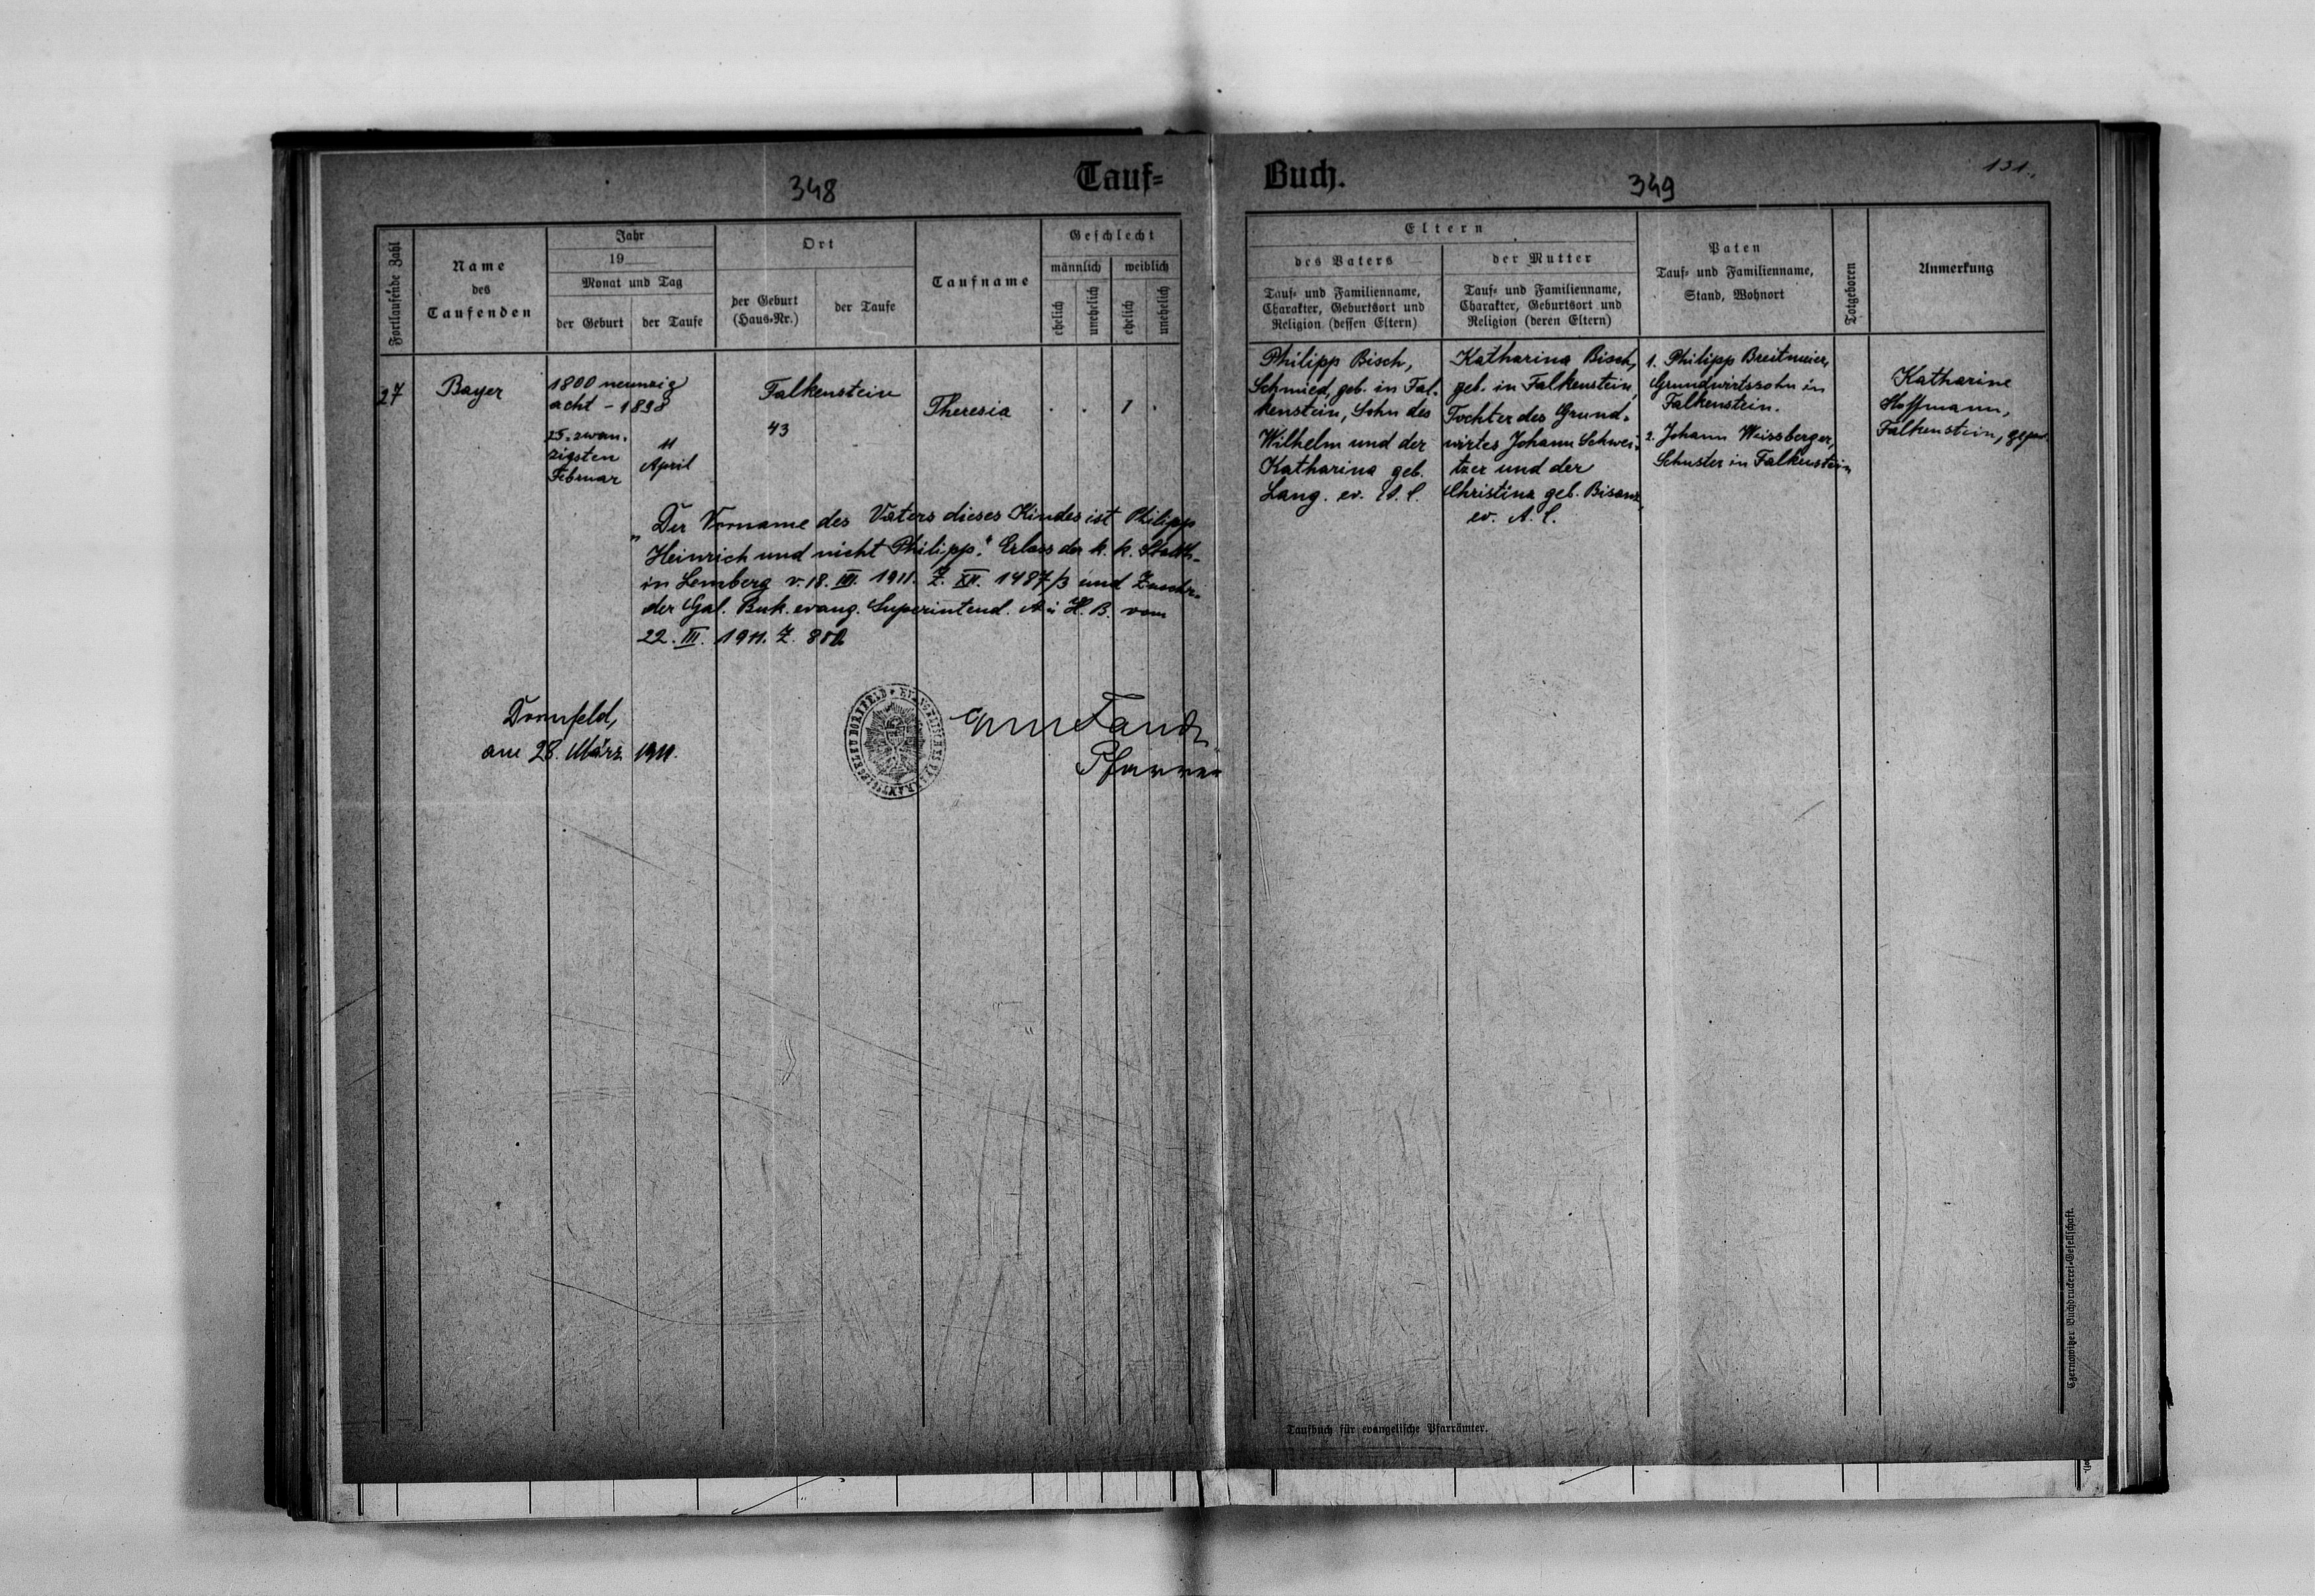 348
Tauf=
Buch.
349
131.
Fortlaufende Zahl
Name
des
Taufenden
Jahr
19
Monat und Tag
der Geburt
der Taufe
Ort
der Geburt
(Haus-Nr.)
der Taufe
Taufname
Geschlecht
männlich
weiblich
ehelich
unehelich
ehelich
unehelich
Eltern
des Vaters
Tauf= und Familienname,
Charakter, Geburtsort und
Religion (dessen Eltern)
der Mutter
Tauf= und Familienname,
Charakter, Geburtsort und
Religion (deren Eltern)
Paten
Tauf= und Familienname,
Stand, Wohnort
Totgeboren
Anmerkung
27
Bayer
1800 neunzig
acht - 1898
25. zwan.
zigsten
Februar
11
April
Falkenstein
43
Theresia
. . 1 .
Philipp Bisch,
Schmied, geb. in Fal.
kenstein, Sohn des
Wilhelm und der
Katharina geb.
Lang. ev. A. C.
Katharina Bisch,
geb. in Falkenstein,
Tochter des Grund.
wirtes Johann Schwei.
tzer und der
Christina geb. Bisanz,
ev. A. C.
1. Philipp Breitmeier,
Grundwirtssohn in
Falkenstein.
2. Johann Weissberger,
Schuster in Falkenstein
Katharine
Hoffmann,
Falkenstein, gepr.
„Der Vorname des Vaters dieses Kindes ist Philipp
Heinrich und nicht Philipp." Erlass der k. k. Statth.
in Lemberg v. 18. III. 1911. Z. XII. 1487/3 und Zuschr.
der Gal. Buk. evang. Superintend. A. u. H. B. vom
22. III. 1911. Z.
Dornfeld,
am 28. März 1911.
Pfarrer
EVANGELISCHES PFARRAMT ZU DORNFELD
Taufbuch für evangelische Pfarrämter.
Czernowitzer Buchdruckerei=Gesellschaft.